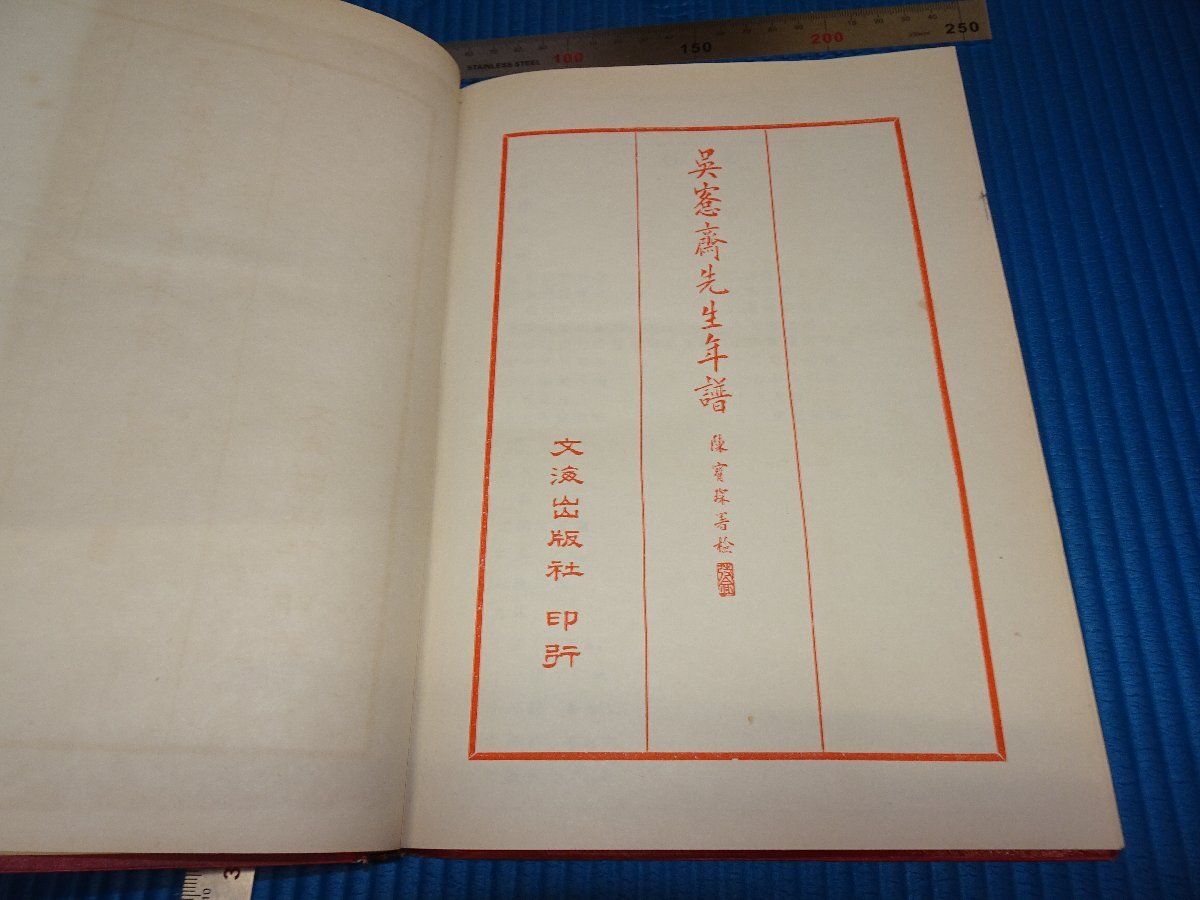 吳愙齋先生年譜
陳寶琛署檢
文海出版社 印行
STAINLESS STEEL
100
150
200
250